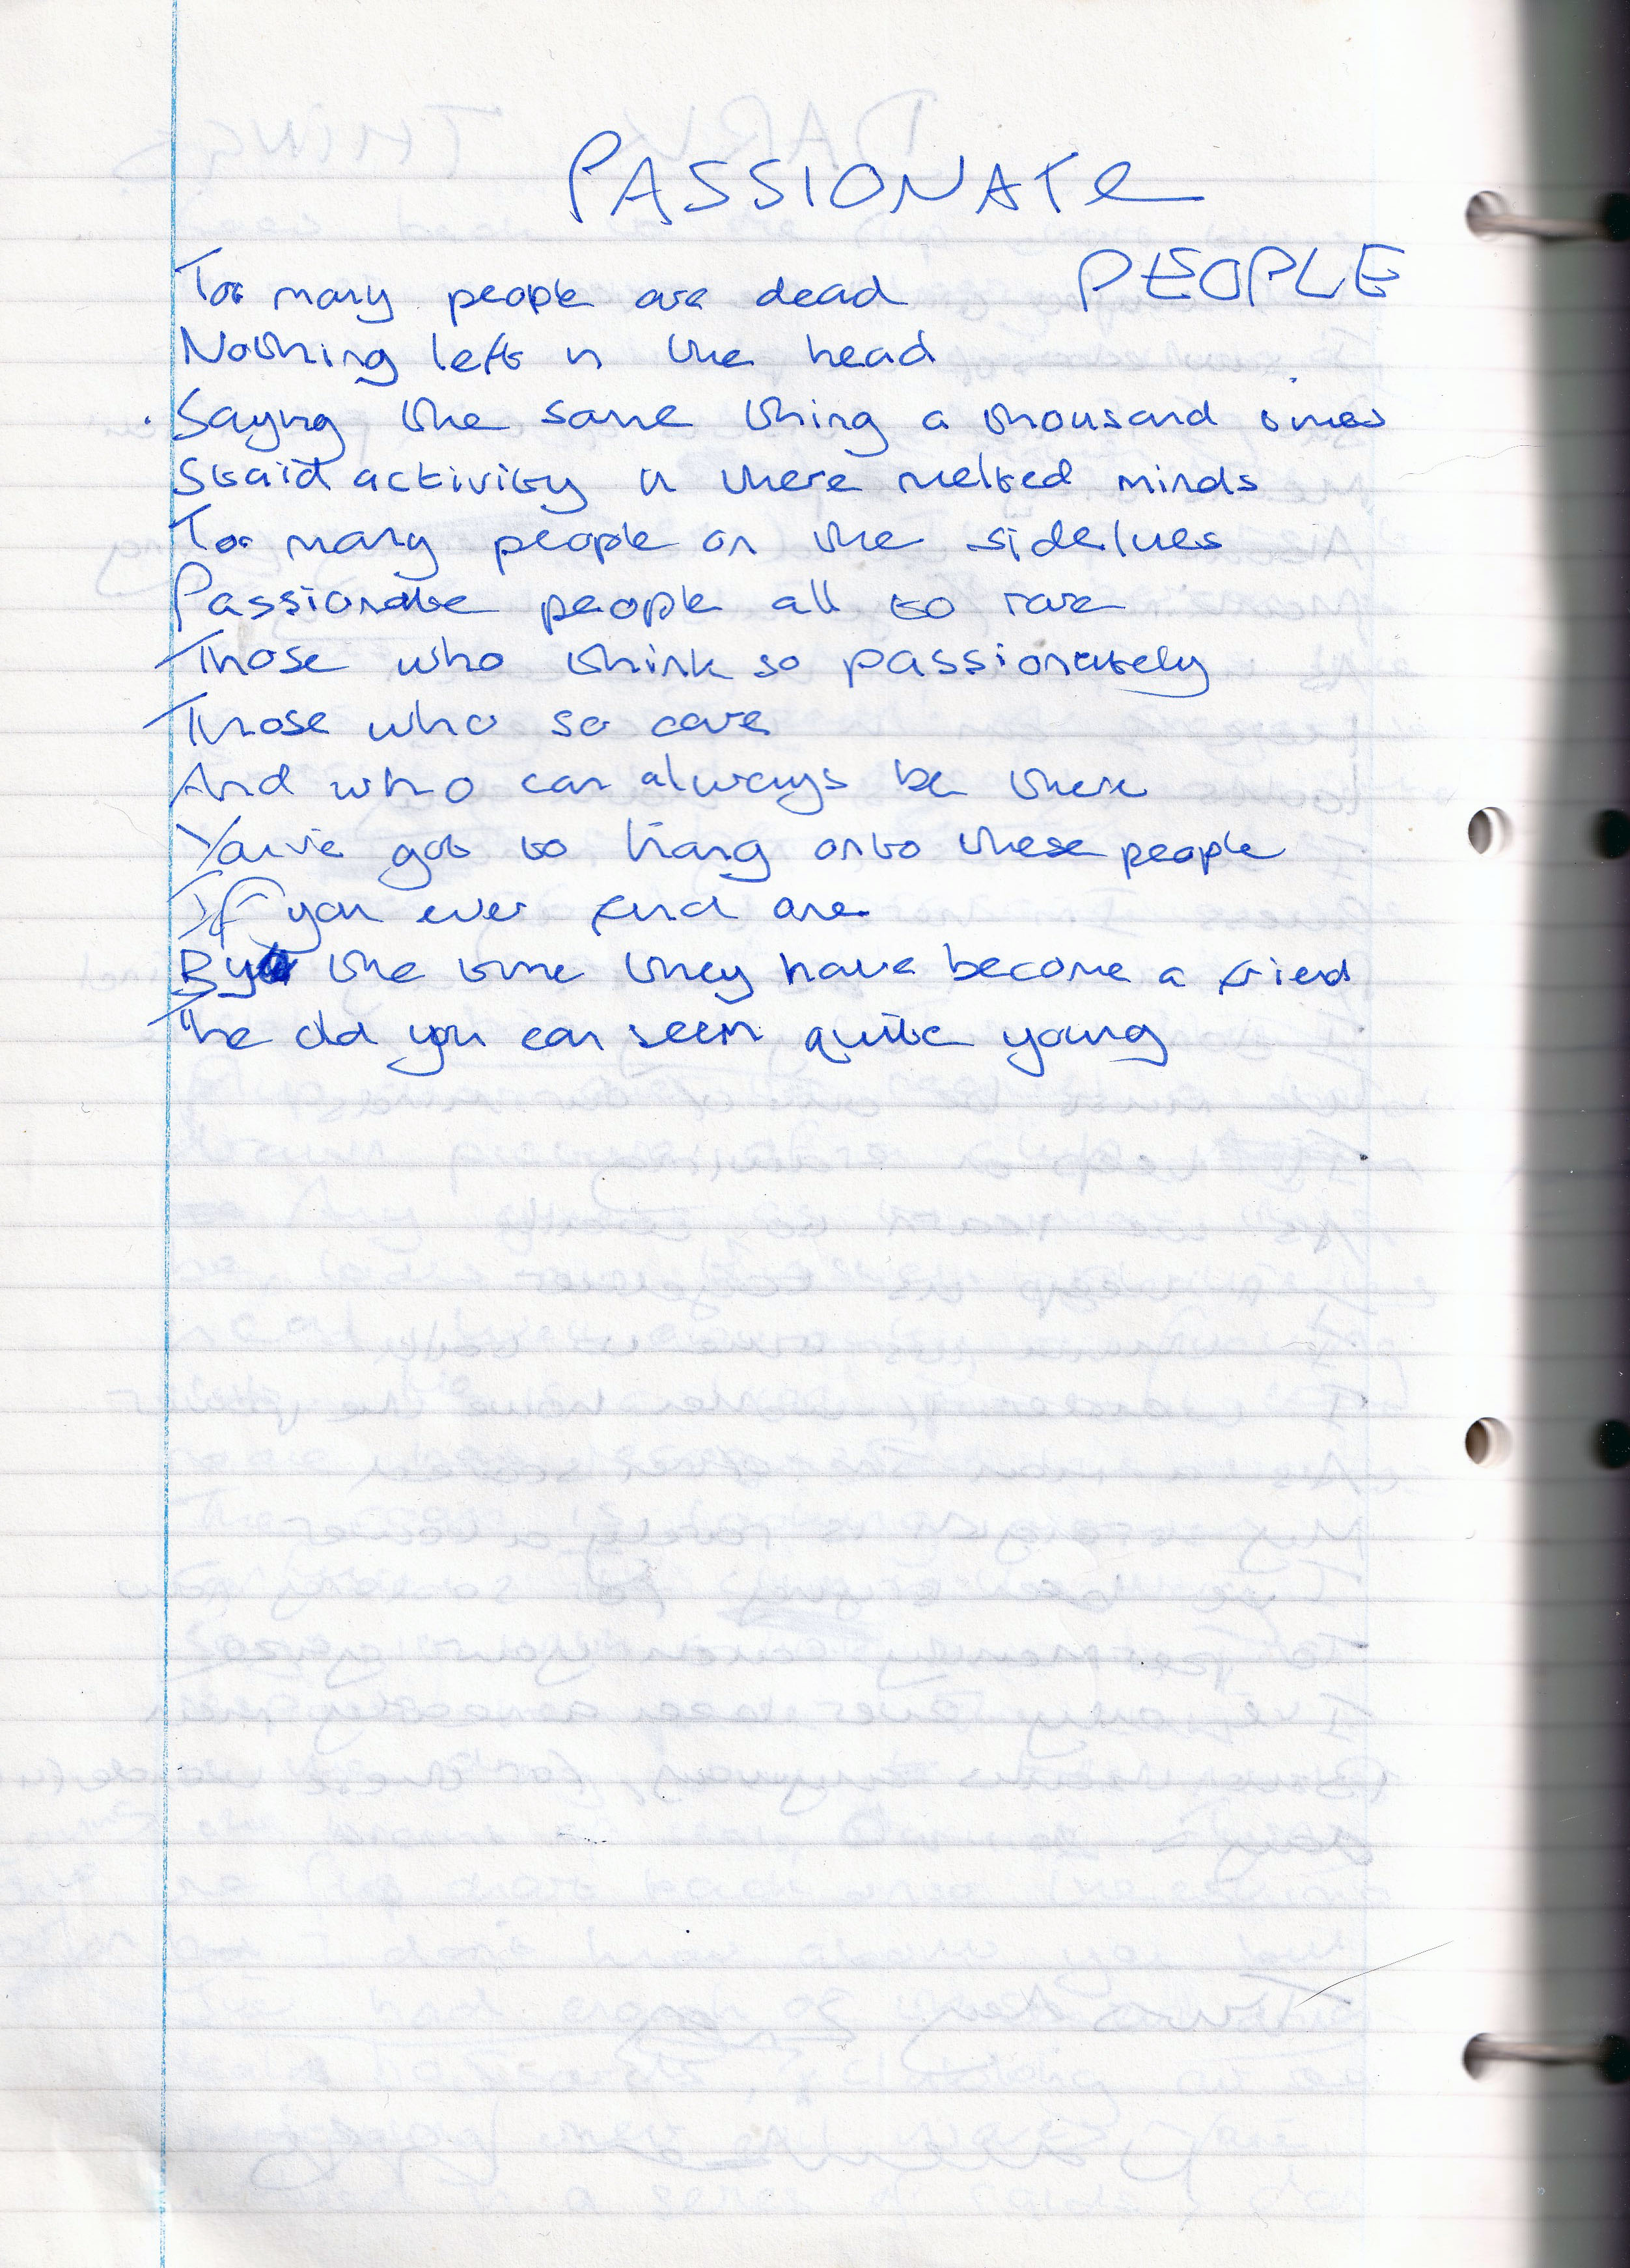 PASSIONATE
PEOPLE
Too many people are dead
Nothing left in the head
Saying the same thing a thousand times
Staid activity in there melted minds
Too many people on the sidelines
Passionate people all to rare
Those who think so passionately
Those who so care
And who can always be there
You've got to hang onto these people
If you ever find one
By the time they have become a friend
The old you can seem quite young